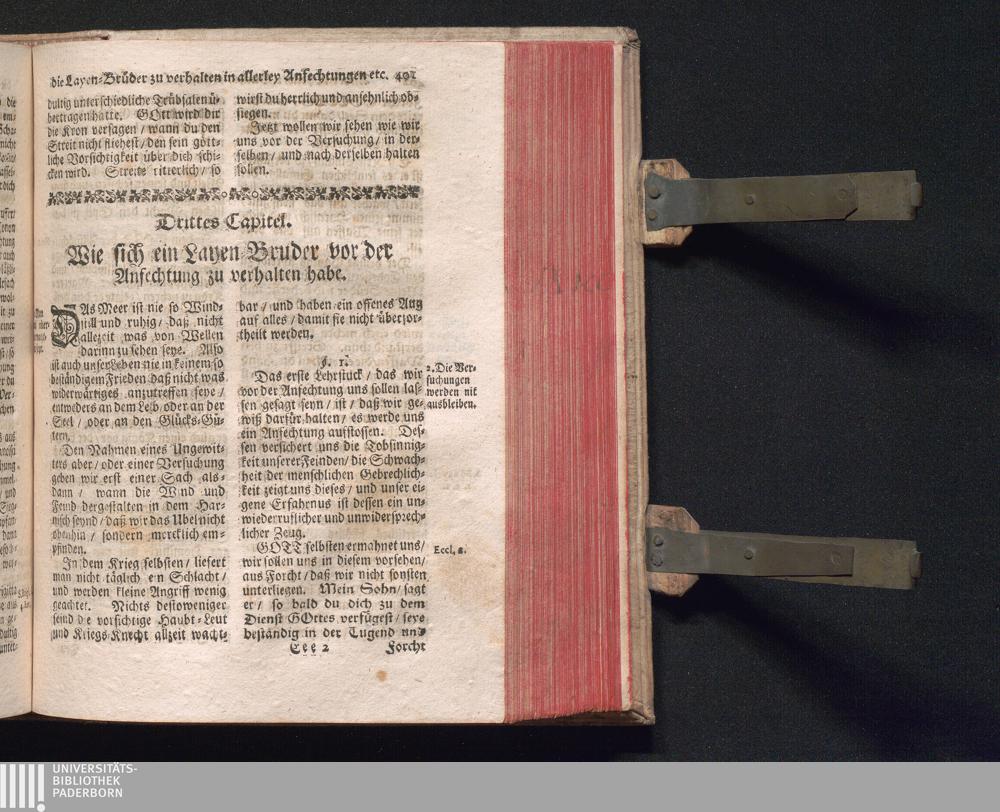 die Layen-Brüder zu verhalten in allerley Anfechtungen etc. 401
dultig unterschiedliche Trübsalen ü-
bertragen hatte. GOtt wird dir
die Kron versagen / wann du den
Streit nicht fliehest / den sein gött-
liche Vorsichtigkeit über dich schi-
cken wird. Streite ritterlich / so
wirst du herrlich und ansehnlich ob-
siegen.
Jetzt wollen wir sehen wie wir
uns vor der Versuchung / in der-
selben / und nach derselben halten
sollen.
Drittes Capitel.
Wie sich ein Layen-Bruder vor der
Anfechtung zu verhalten habe.
DAs Meer ist nie so Wind-
still und ruhig / daß nicht
allezeit was von Wellen
darinn zu sehen seye. Also
ist auch unser Leben nie in keinem so
beständigem Frieden daß nicht was
widerwärtiges anzutreffen seye /
entweders an dem Leib oder an der
Seel / oder an den Glücks-Gü-
tern.
Den Nahmen eines Ungewit-
ters aber / oder einer Versuchung
geben wir erst einer Sach als-
dann / wann die Wind und
Feind dergestalten in dem Har-
nisch seynd / daß wir das Ubel nicht
obenhin / sondern mercklich em-
pfinden.
In dem Krieg selbsten / liefert
man nicht täglich ein Schlacht /
und werden kleine Angriff wenig
geachtet. Nichts destoweniger
seind die vorsichtige Haubt-Leut
und Kriegs-Knecht allzeit wacht-
bar / und haben ein offenes Aug
auf alles / damit sie nicht übervor-
theilt werden.
§. 1.
Das erste Lehrstuck / das wir
vor der Anfechtung uns sollen las-
sen gesagt seyn / ist / daß wir ge-
wiß darfür halten / es werde uns
ein Anfechtung aufstossen. Des-
sen versichert uns die Tobsinnig-
keit unserer Feinden / die Schwach-
heit der menschlichen Gebrechlich-
keit zeigt uns dieses / und unser ei-
gene Erfahrnus ist dessen ein un-
wiederrufflicher und unwidersprech-
licher Zeug.
GOTT selbsten ermahnet uns /
wir sollen uns in diesem vorsehen /
aus Forcht / daß wir nicht sonsten
unterliegen. Mein Sohn / sagt
er / so bald du dich zu dem
Dienst GOttes verfügest / seye
beständig in der Tugend und
2. Die Ver-
suchungen
werden nit
ausbleiben.
Eccl. 2.
Eee 2
Forcht
UNIVERSITÄTS-
BIBLIOTHEK
PADERBORN